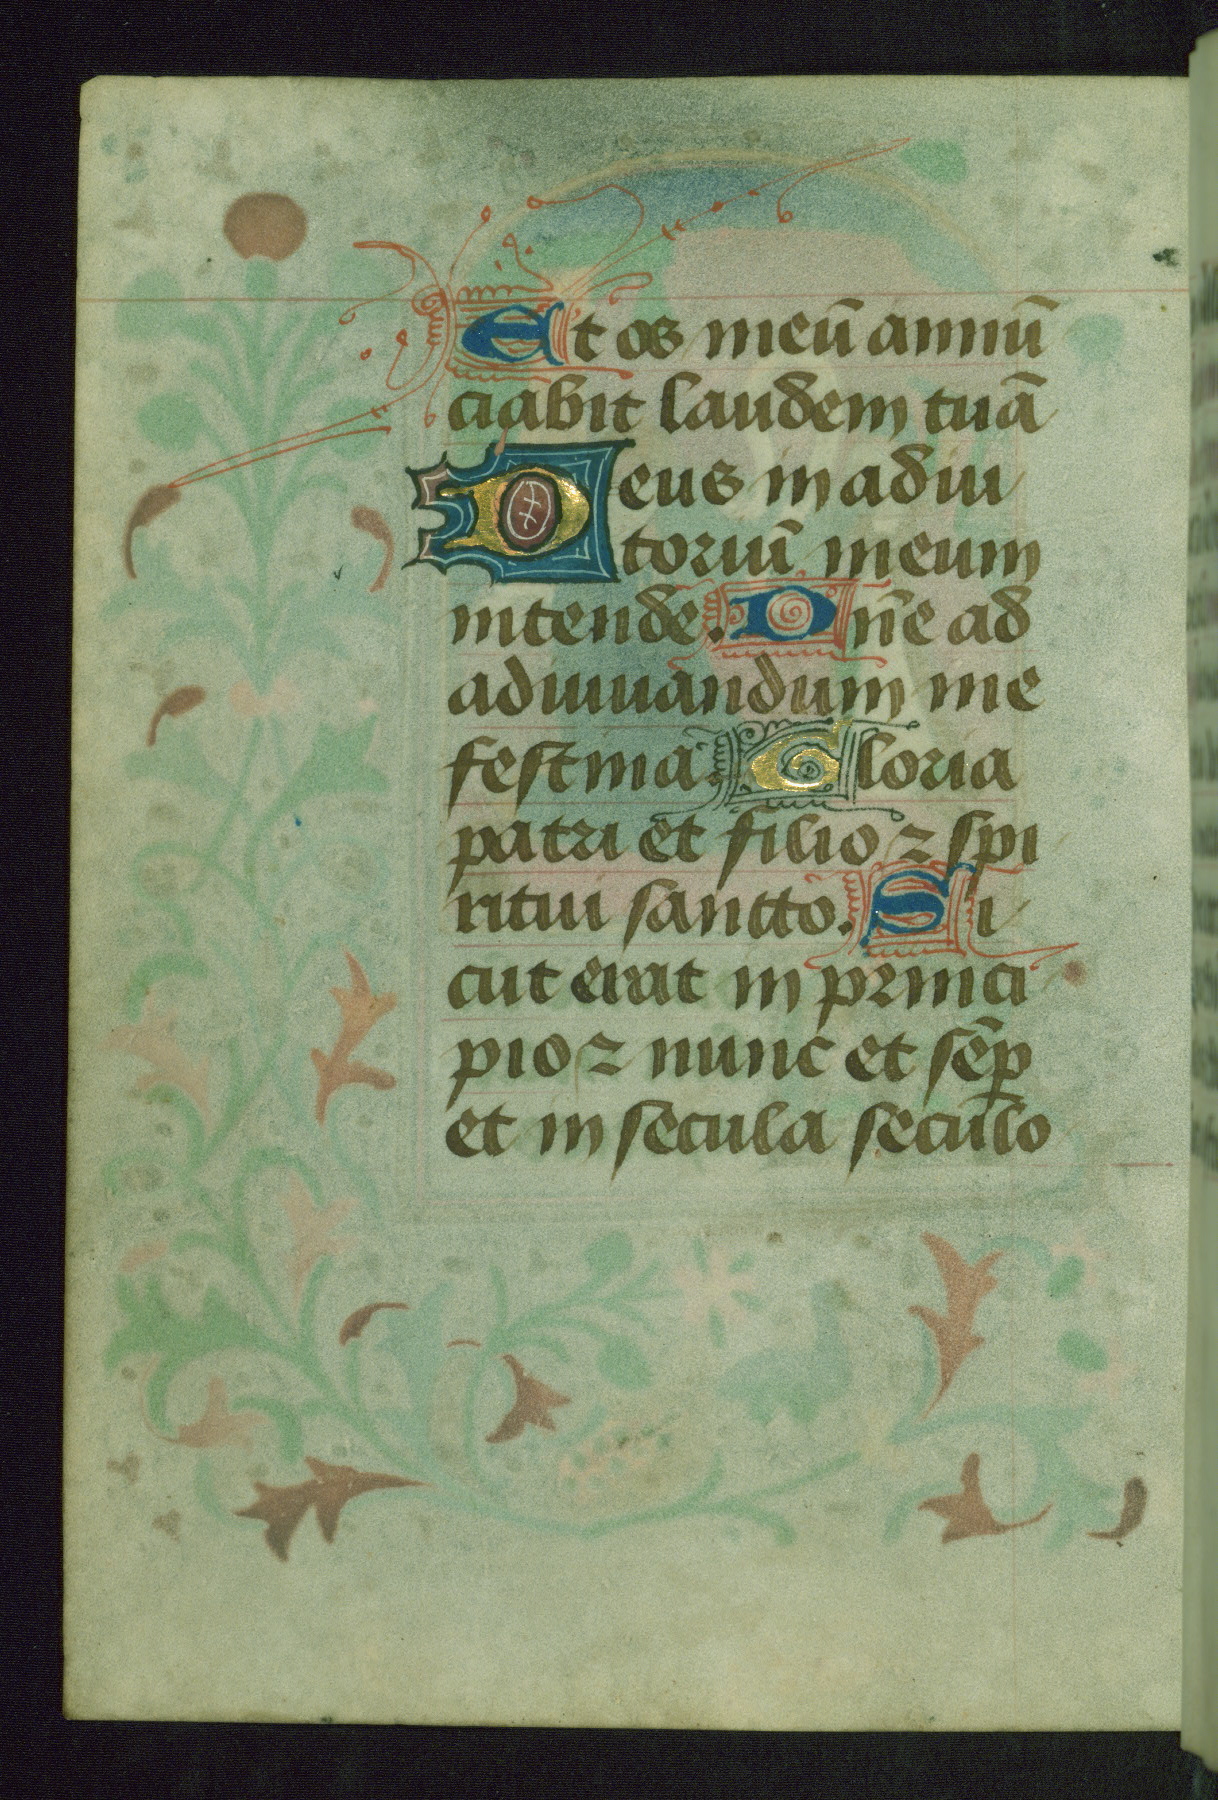 Et os meū annūū
ciabit laudem tuā
Deus in adiu
toriū meum
intende. Dn̄e ad
adiuuandum me
festina. Gloria
patri et filio ⁊ spi
ritui sancto. Si
cut erat in princi
pio ⁊ nunc et sēꝑ
et in secula seculo